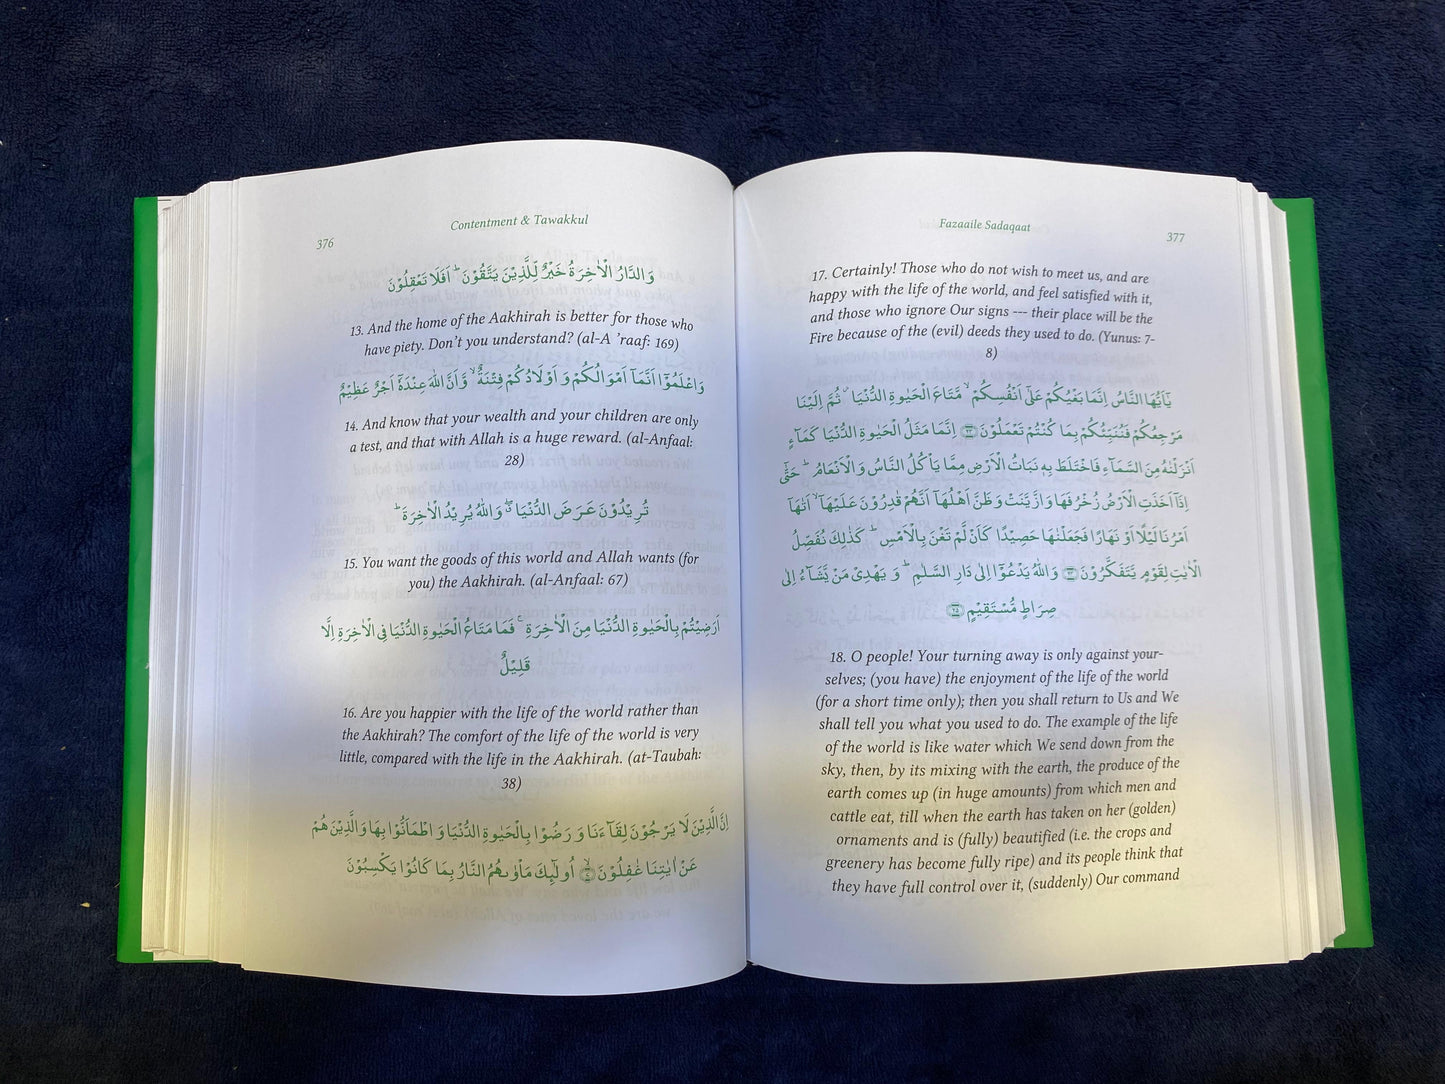 376
Contentment & Tawakkul
وَالدَّارُ الْاٰخِرَةُ خَيْرٌ لِّلَّذِيْنَ يَتَّقُوْنَ ؕ اَفَلَا تَعْقِلُوْنَ
13. And the home of the Aakhirah is better for those who
have piety. Don't you understand? (al-A 'raaf: 169)
وَاعْلَمُوْٓا اَنَّمَآ اَمْوَالُكُمْ وَ اَوْلَادُكُمْ فِتْنَةٌ ۙ وَّاَنَّ اللّٰهَ عِنْدَهٗٓ اَجْرٌ عَظِيْمٌ
14. And know that your wealth and your children are only
a test, and that with Allah is a huge reward. (al-Anfaal:
28)
تُرِيْدُوْنَ عَرَضَ الدُّنْيَا ۖ وَاللّٰهُ يُرِيْدُ الْاٰخِرَةَ ؕ
15. You want the goods of this world and Allah wants (for
you) the Aakhirah. (al-Anfaal: 67)
اَرَضِيْتُمْ بِالْحَيٰوةِ الدُّنْيَا مِنَ الْاٰخِرَةِ ۚ فَمَا مَتَاعُ الْحَيٰوةِ الدُّنْيَا فِى الْاٰخِرَةِ اِلَّا
قَلِيْلٌ
16. Are you happier with the life of the world rather than
the Aakhirah? The comfort of the life of the world is very
little, compared with the life in the Aakhirah. (at-Taubah:
38)
اِنَّ الَّذِيْنَ لَا يَرْجُوْنَ لِقَآءَنَا وَ رَضُوْا بِالْحَيٰوةِ الدُّنْيَا وَ اطْمَاَنُّوْا بِهَا وَالَّذِيْنَ هُمْ
عَنْ اٰيٰتِنَا غٰفِلُوْنَ ۙ اُولٰٓئِكَ مَاْوٰىهُمُ النَّارُ بِمَا كَانُوْا يَكْسِبُوْنَ
Fazaaile Sadaqaat
377
17. Certainly! Those who do not wish to meet us, and are
happy with the life of the world, and feel satisfied with it,
and those who ignore Our signs --- their place will be the
Fire because of the (evil) deeds they used to do. (Yunus: 7-
8)
يٰٓاَيُّهَا النَّاسُ اِنَّمَا بَغْيُكُمْ عَلٰٓى اَنْفُسِكُمْ ۙ مَّتَاعَ الْحَيٰوةِ الدُّنْيَا ۫ ثُمَّ اِلَيْنَا
مَرْجِعُكُمْ فَنُنَبِّئُكُمْ بِمَا كُنْتُمْ تَعْمَلُوْنَ ﴿۲۳﴾ اِنَّمَا مَثَلُ الْحَيٰوةِ الدُّنْيَا كَمَآءٍ
اَنْزَلْنٰهُ مِنَ السَّمَآءِ فَاخْتَلَطَ بِهٖ نَبَاتُ الْاَرْضِ مِمَّا يَاْكُلُ النَّاسُ وَ الْاَنْعَامُ ؕ حَتّٰٓى
اِذَآ اَخَذَتِ الْاَرْضُ زُخْرُفَهَا وَ ازَّيَّنَتْ وَ ظَنَّ اَهْلُهَآ اَنَّهُمْ قٰدِرُوْنَ عَلَيْهَآ ۙ اَتٰىهَآ
اَمْرُنَا لَيْلًا اَوْ نَهَارًا فَجَعَلْنٰهَا حَصِيْدًا كَاَنْ لَّمْ تَغْنَ بِالْاَمْسِ ؕ كَذٰلِكَ نُفَصِّلُ
الْاٰيٰتِ لِقَوْمٍ يَّتَفَكَّرُوْنَ ﴿۲۴﴾ وَاللّٰهُ يَدْعُوْٓا اِلٰى دَارِ السَّلٰمِ ؕ وَ يَهْدِىْ مَنْ يَّشَآءُ اِلٰى
صِرَاطٍ مُّسْتَقِيْمٍ ﴿۲۵﴾
18. O people! Your turning away is only against your-
selves; (you have) the enjoyment of the life of the world
(for a short time only); then you shall return to Us and We
shall tell you what you used to do. The example of the life
of the world is like water which We send down from the
sky, then, by its mixing with the earth, the produce of the
earth comes up (in huge amounts) from which men and
cattle eat, till when the earth has taken on her (golden)
ornaments and is (fully) beautified (i.e. the crops and
greenery has become fully ripe) and its people think that
they have full control over it, (suddenly) Our command